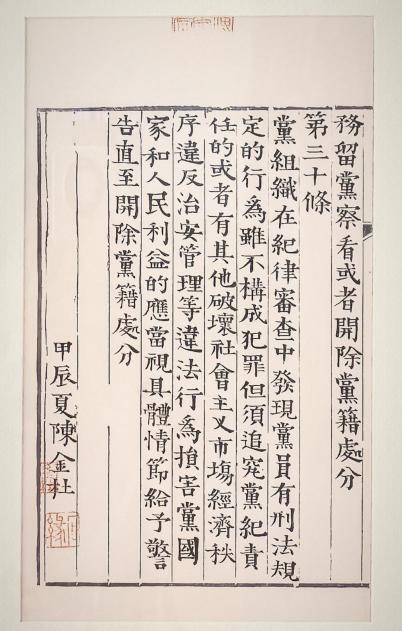 務留黨察看或者開除黨籍處分
第三十條
黨組織在紀律審查中發現黨員有刑法規
定的行爲雖不構成犯罪但須追究黨紀責
任的或者有其他破壞社會主义市場經濟秩
序違反治安管理等違法行爲損害黨國
家和人民利益的應當視具體情節給予警
告直至開除黨籍處分
甲辰夏陳金杜